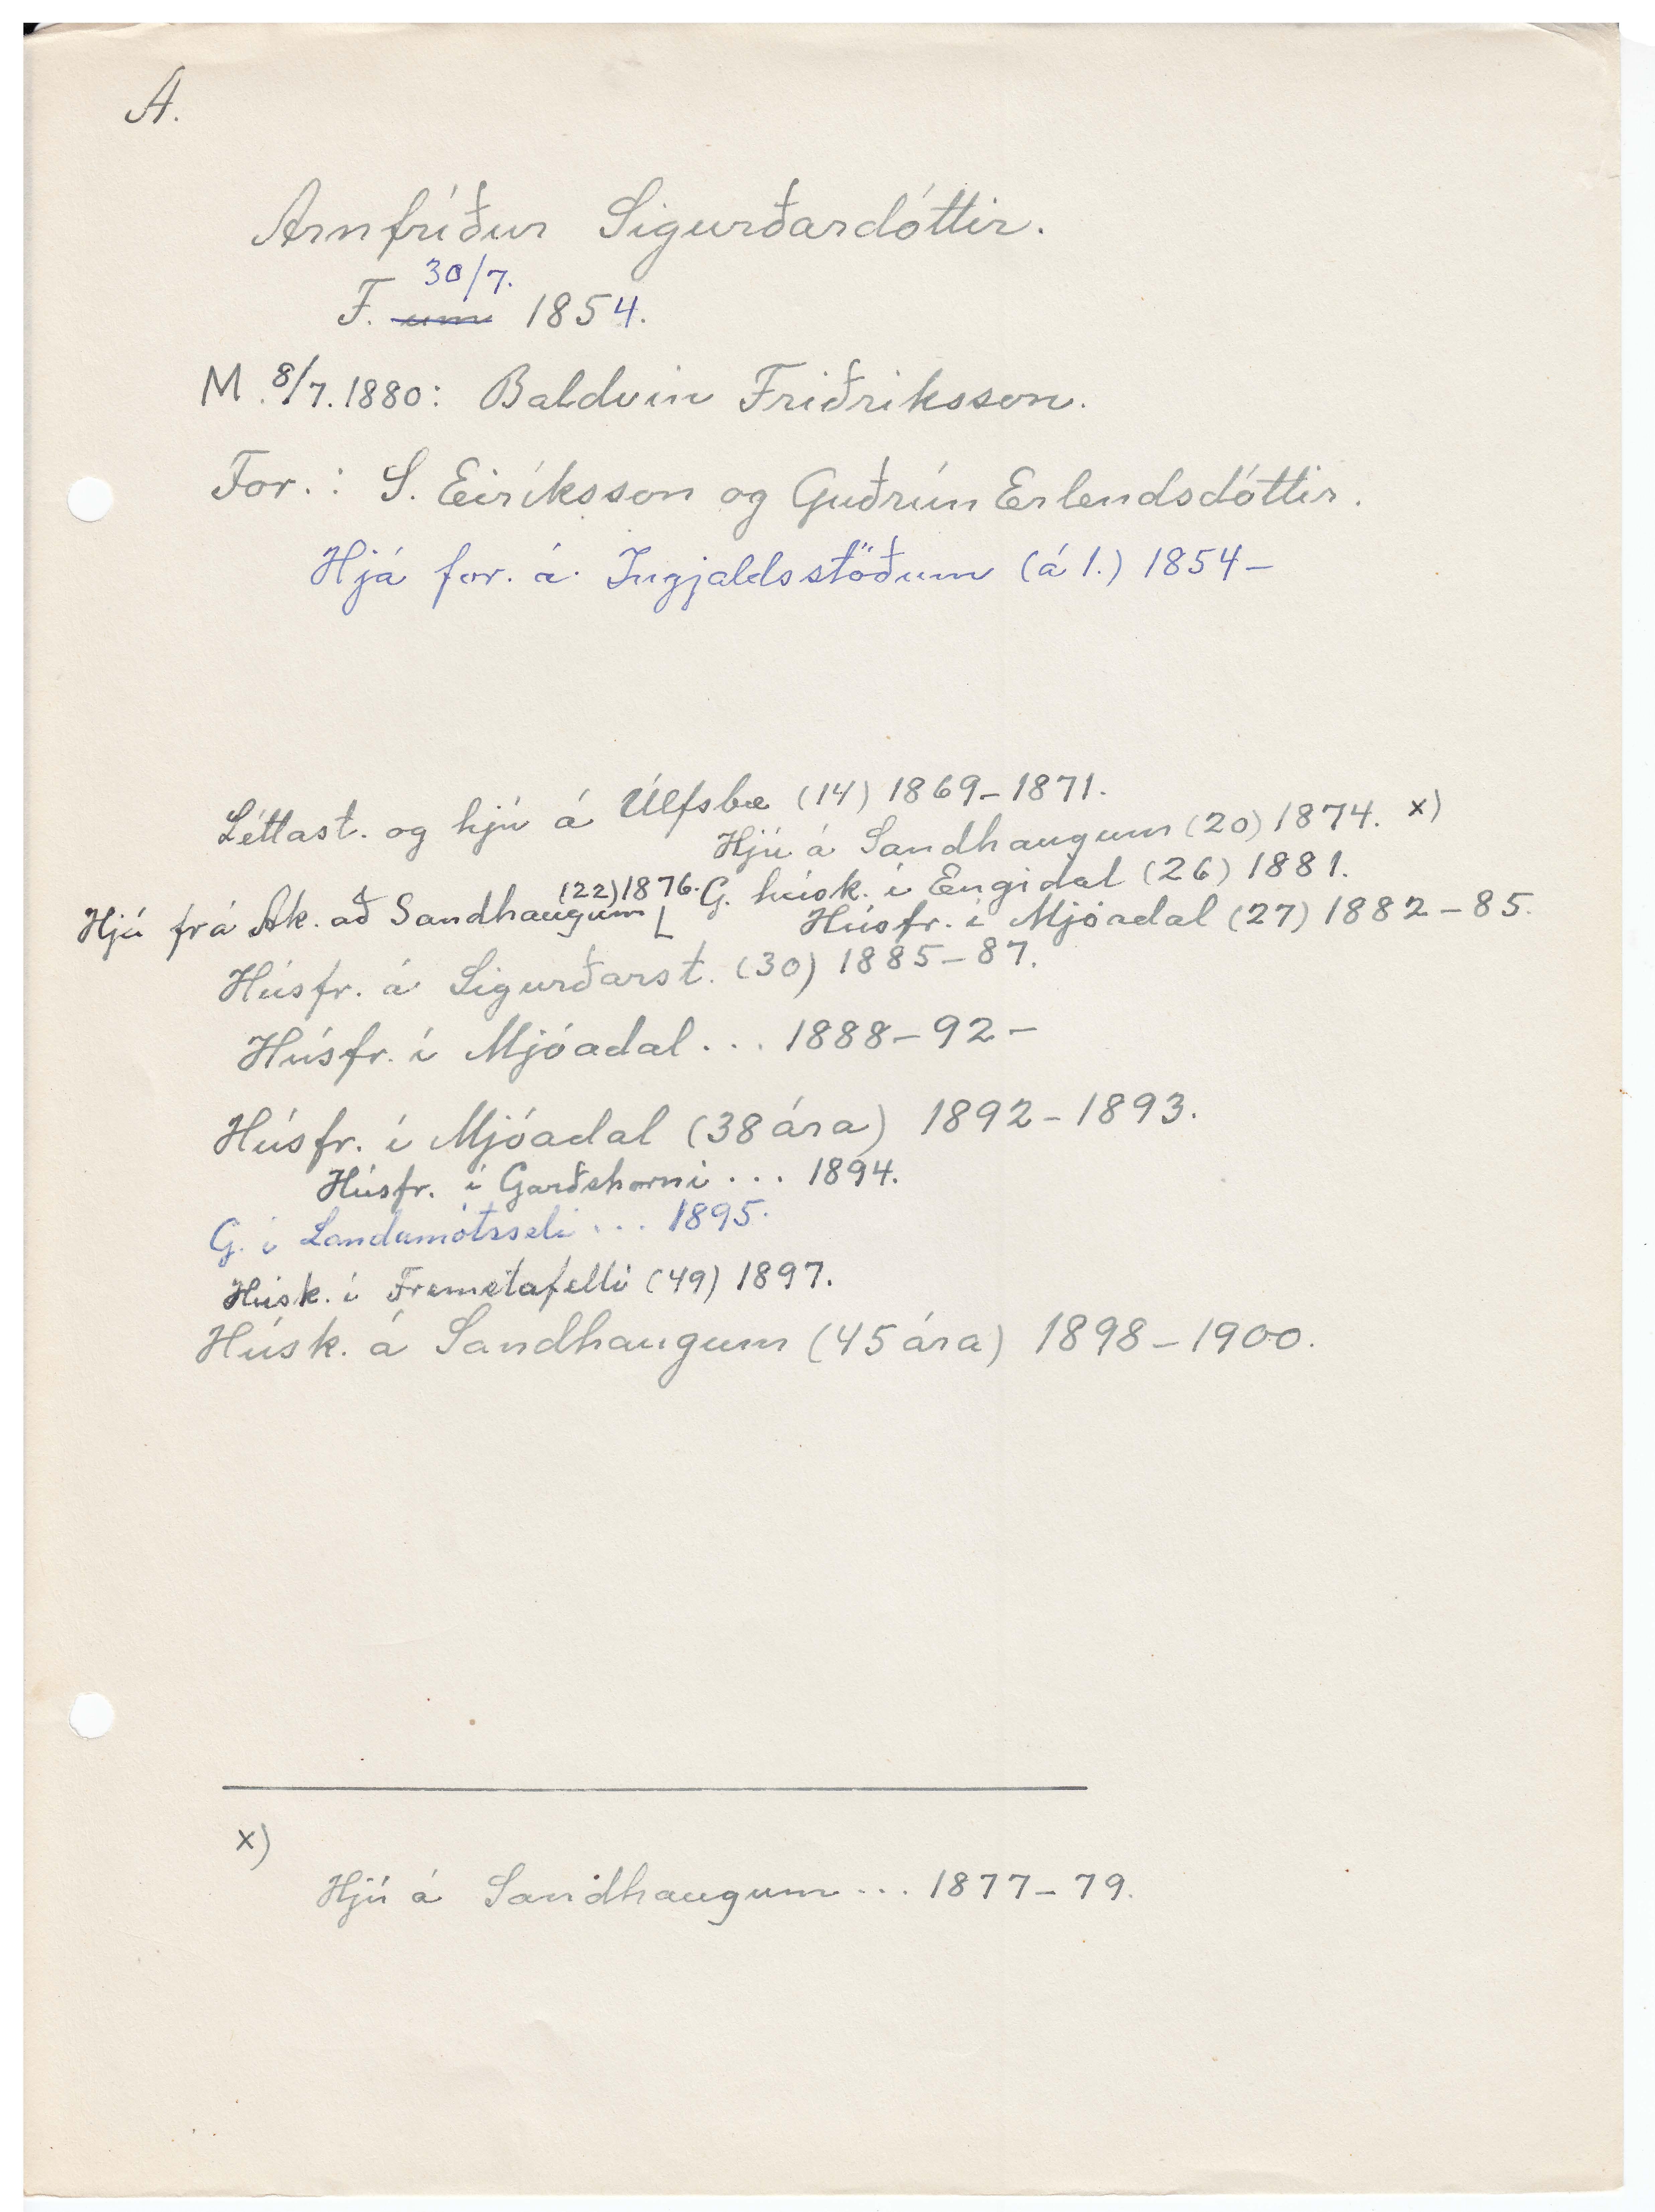 A.
Arnfríður Sigurðardóttir.
30/7.
F. um 1854.
M. 8/7. 1880: Baldvin Friðriksson.
For.: S. Eiríksson og Guðrún Erlendsdóttir.
Hjá for. á Ingjaldsstöðum (á 1.) 1854-
Léttast. og hjú á Úlfsbæ (14) 1869-1871.
Hjú á Sandhaugum (20) 1874. x)
Hjú frá Ak. að Sandhaugum (22) 1876.
G. húsk. í Engidal (26) 1881.
Húsfr. í Mjóadal (27) 1882-85.
Húsfr. á Sigurðarst. (30) 1885-87.
Húsfr. í Mjóadal ... 1888-92-
Húsfr. í Mjóadal (38 ára) 1892-1893.
Húsfr. í Garðshorni ... 1894.
G. í Landamótsseli ... 1895.
Húsk. í Fremstafelli (49) 1897.
Húsk. á Sandhaugum (45 ára) 1898-1900.
x)
Hjú á Sandhaugum ... 1877-79.